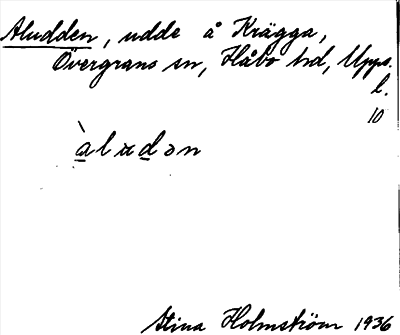 Aludden, udde å Krägga,
Övergrans sn, Håbo hd, Upps.
l.
10
àludən
Stina Holmström 1936